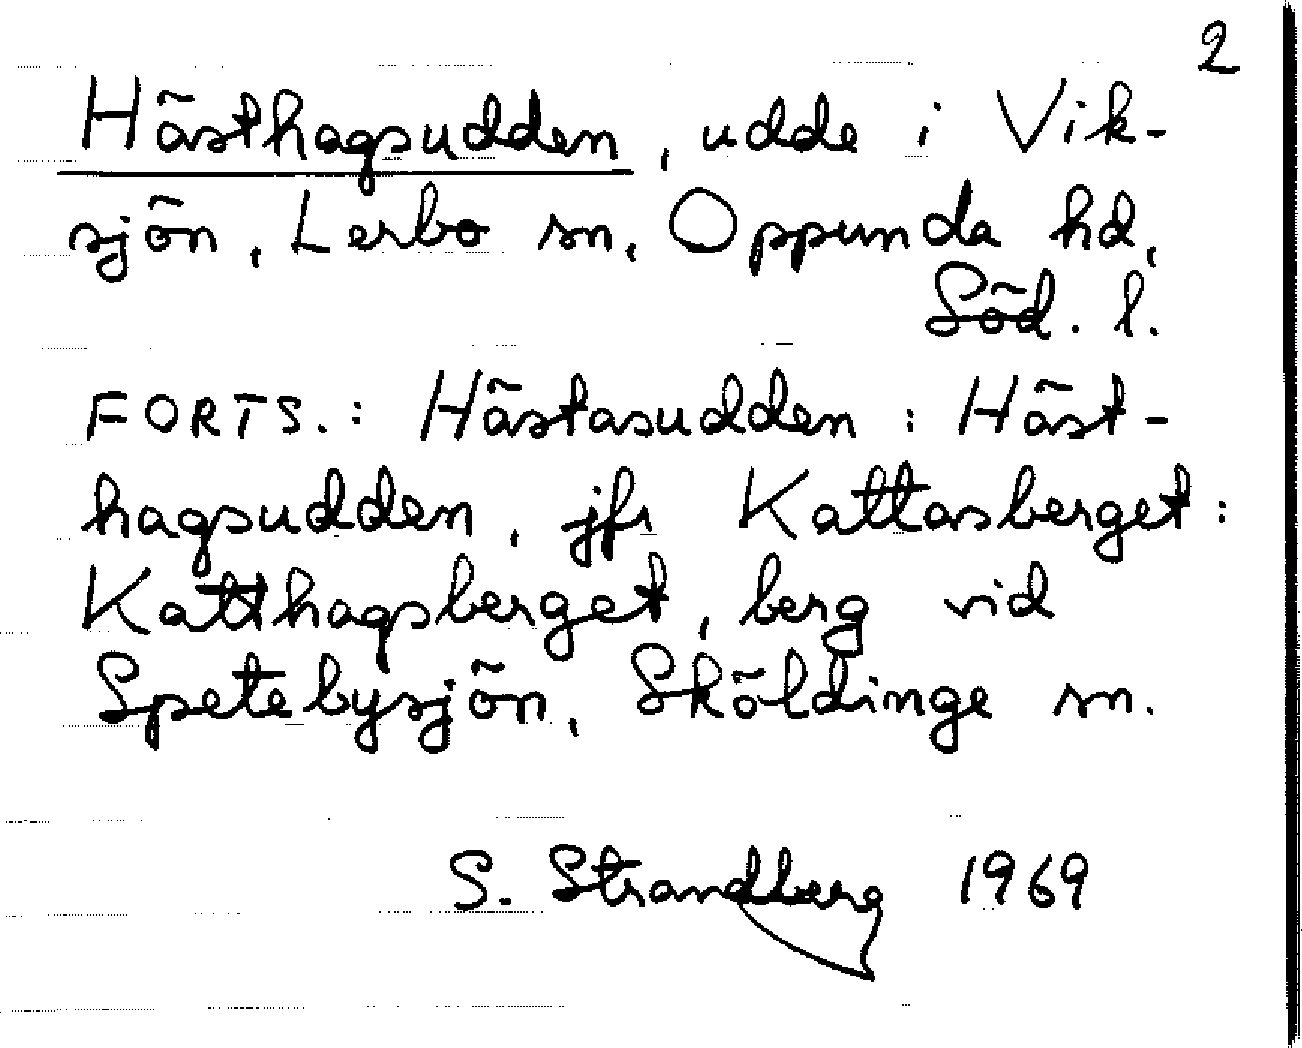 2
Hästhagsudden, udde i Vik-
sjön, Lerbo sn, Oppunda hd,
Söd. l.
FORTS.: Hästasudden : Häst-
hagsudden, jfr Kattasberget :
Katthagsberget, berg vid
Spetebysjön, Sköldinge sn.
S. Strandberg 1969